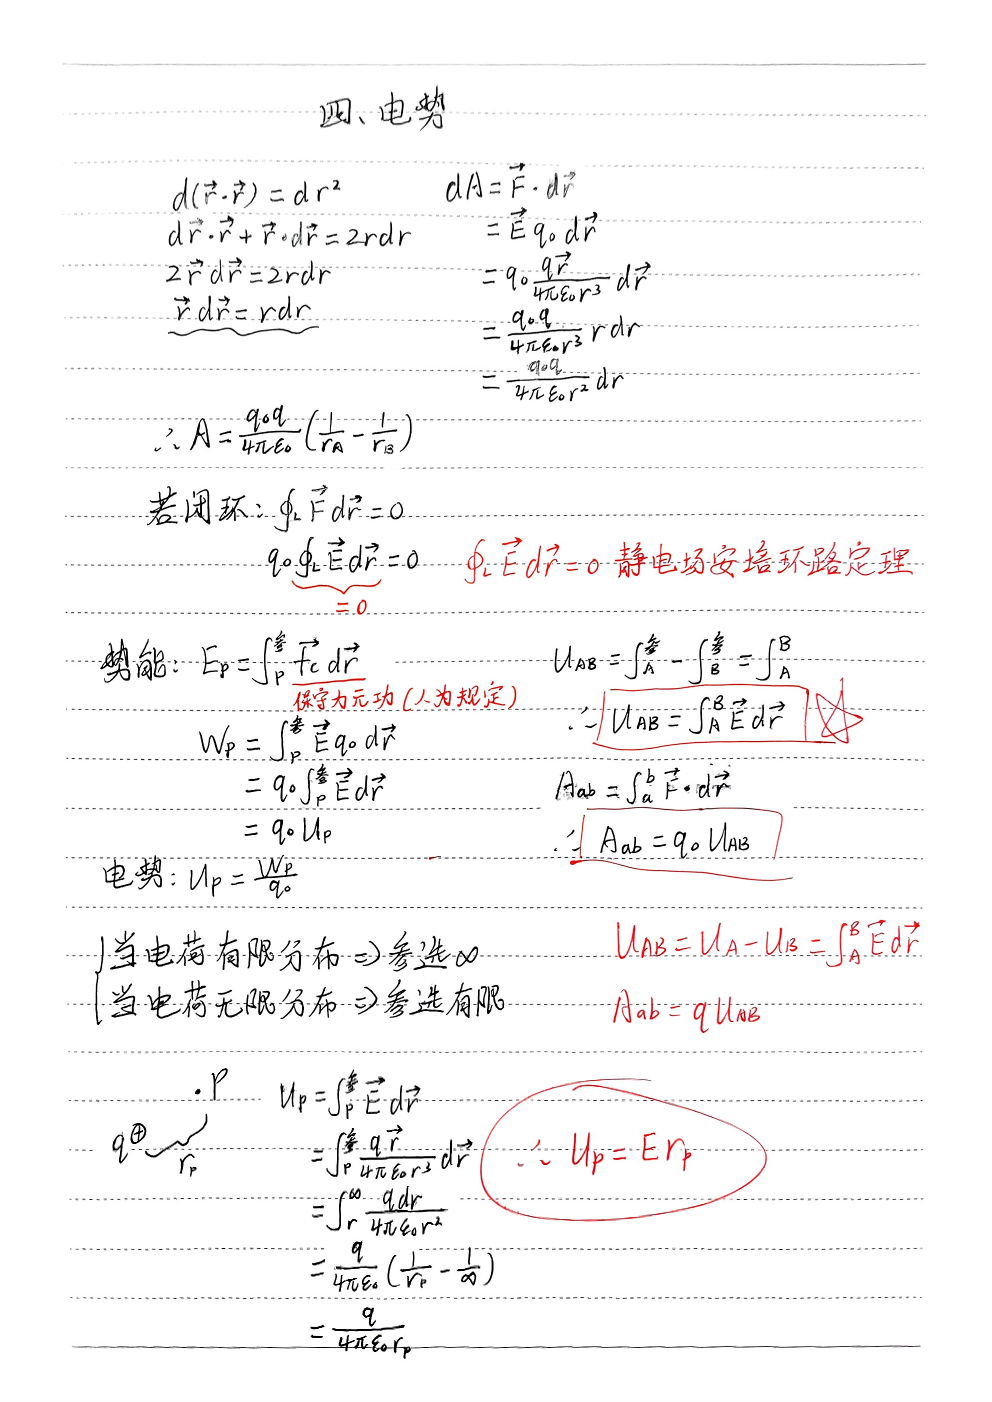 四、电势
d(r⃗·r⃗) = dr²
dr⃗·r⃗ + r⃗·dr⃗ = 2rdr
2r⃗dr⃗ = 2rdr
r⃗dr⃗ = rdr
dA = F⃗·dr⃗
= E⃗q₀dr⃗
= q₀ qr⃗/4πε₀r³ dr⃗
= q₀q/4πε₀r³ rdr
= q₀q/4πε₀r² dr
∴ A = q₀q/4πε₀ (1/r_A - 1/r_B)
若闭环: ∮_L F⃗dr⃗ = 0
q₀∮_L E⃗dr⃗ = 0
= 0
∮_L E⃗dr⃗ = 0 静电场安培环路定理
势能: E_p = ∫_p^参 f⃗c dr⃗
保守力元功(人为规定)
W_p = ∫_p^参 E⃗q₀dr⃗
= q₀∫_p^参 E⃗dr⃗
= q₀U_p
电势: U_p = W_p/q₀
U_AB = ∫_A^参 - ∫_B^参 = ∫_A^B
∴ U_AB = ∫_A^B E⃗dr⃗
A_ab = ∫_a^b F⃗·dr⃗
∴ A_ab = q₀U_AB
当电荷有限分布 ⇒ 参选∞
当电荷无限分布 ⇒ 参选有限
U_AB = U_A - U_B = ∫_A^B E⃗dr⃗
A_ab = qU_AB
·P
q⊕
r_p
U_p = ∫_p^参 E⃗dr⃗
= ∫_p^参 qr⃗/4πε₀r³ dr⃗
= ∫_r^∞ qdr/4πε₀r²
= q/4πε₀ (1/r_p - 1/∞)
= q/4πε₀r_p
∴ U_p = Er_p